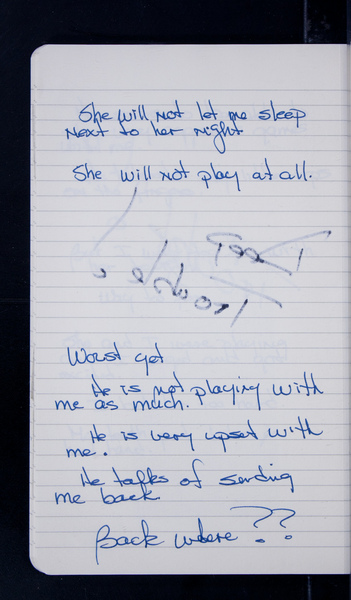 She will not let me sleep
Next to her right
She will not play at all.
Worst yet
He is not playing with
me as much.
He is very upset with
me.
He talks of sending
me back
Back where??